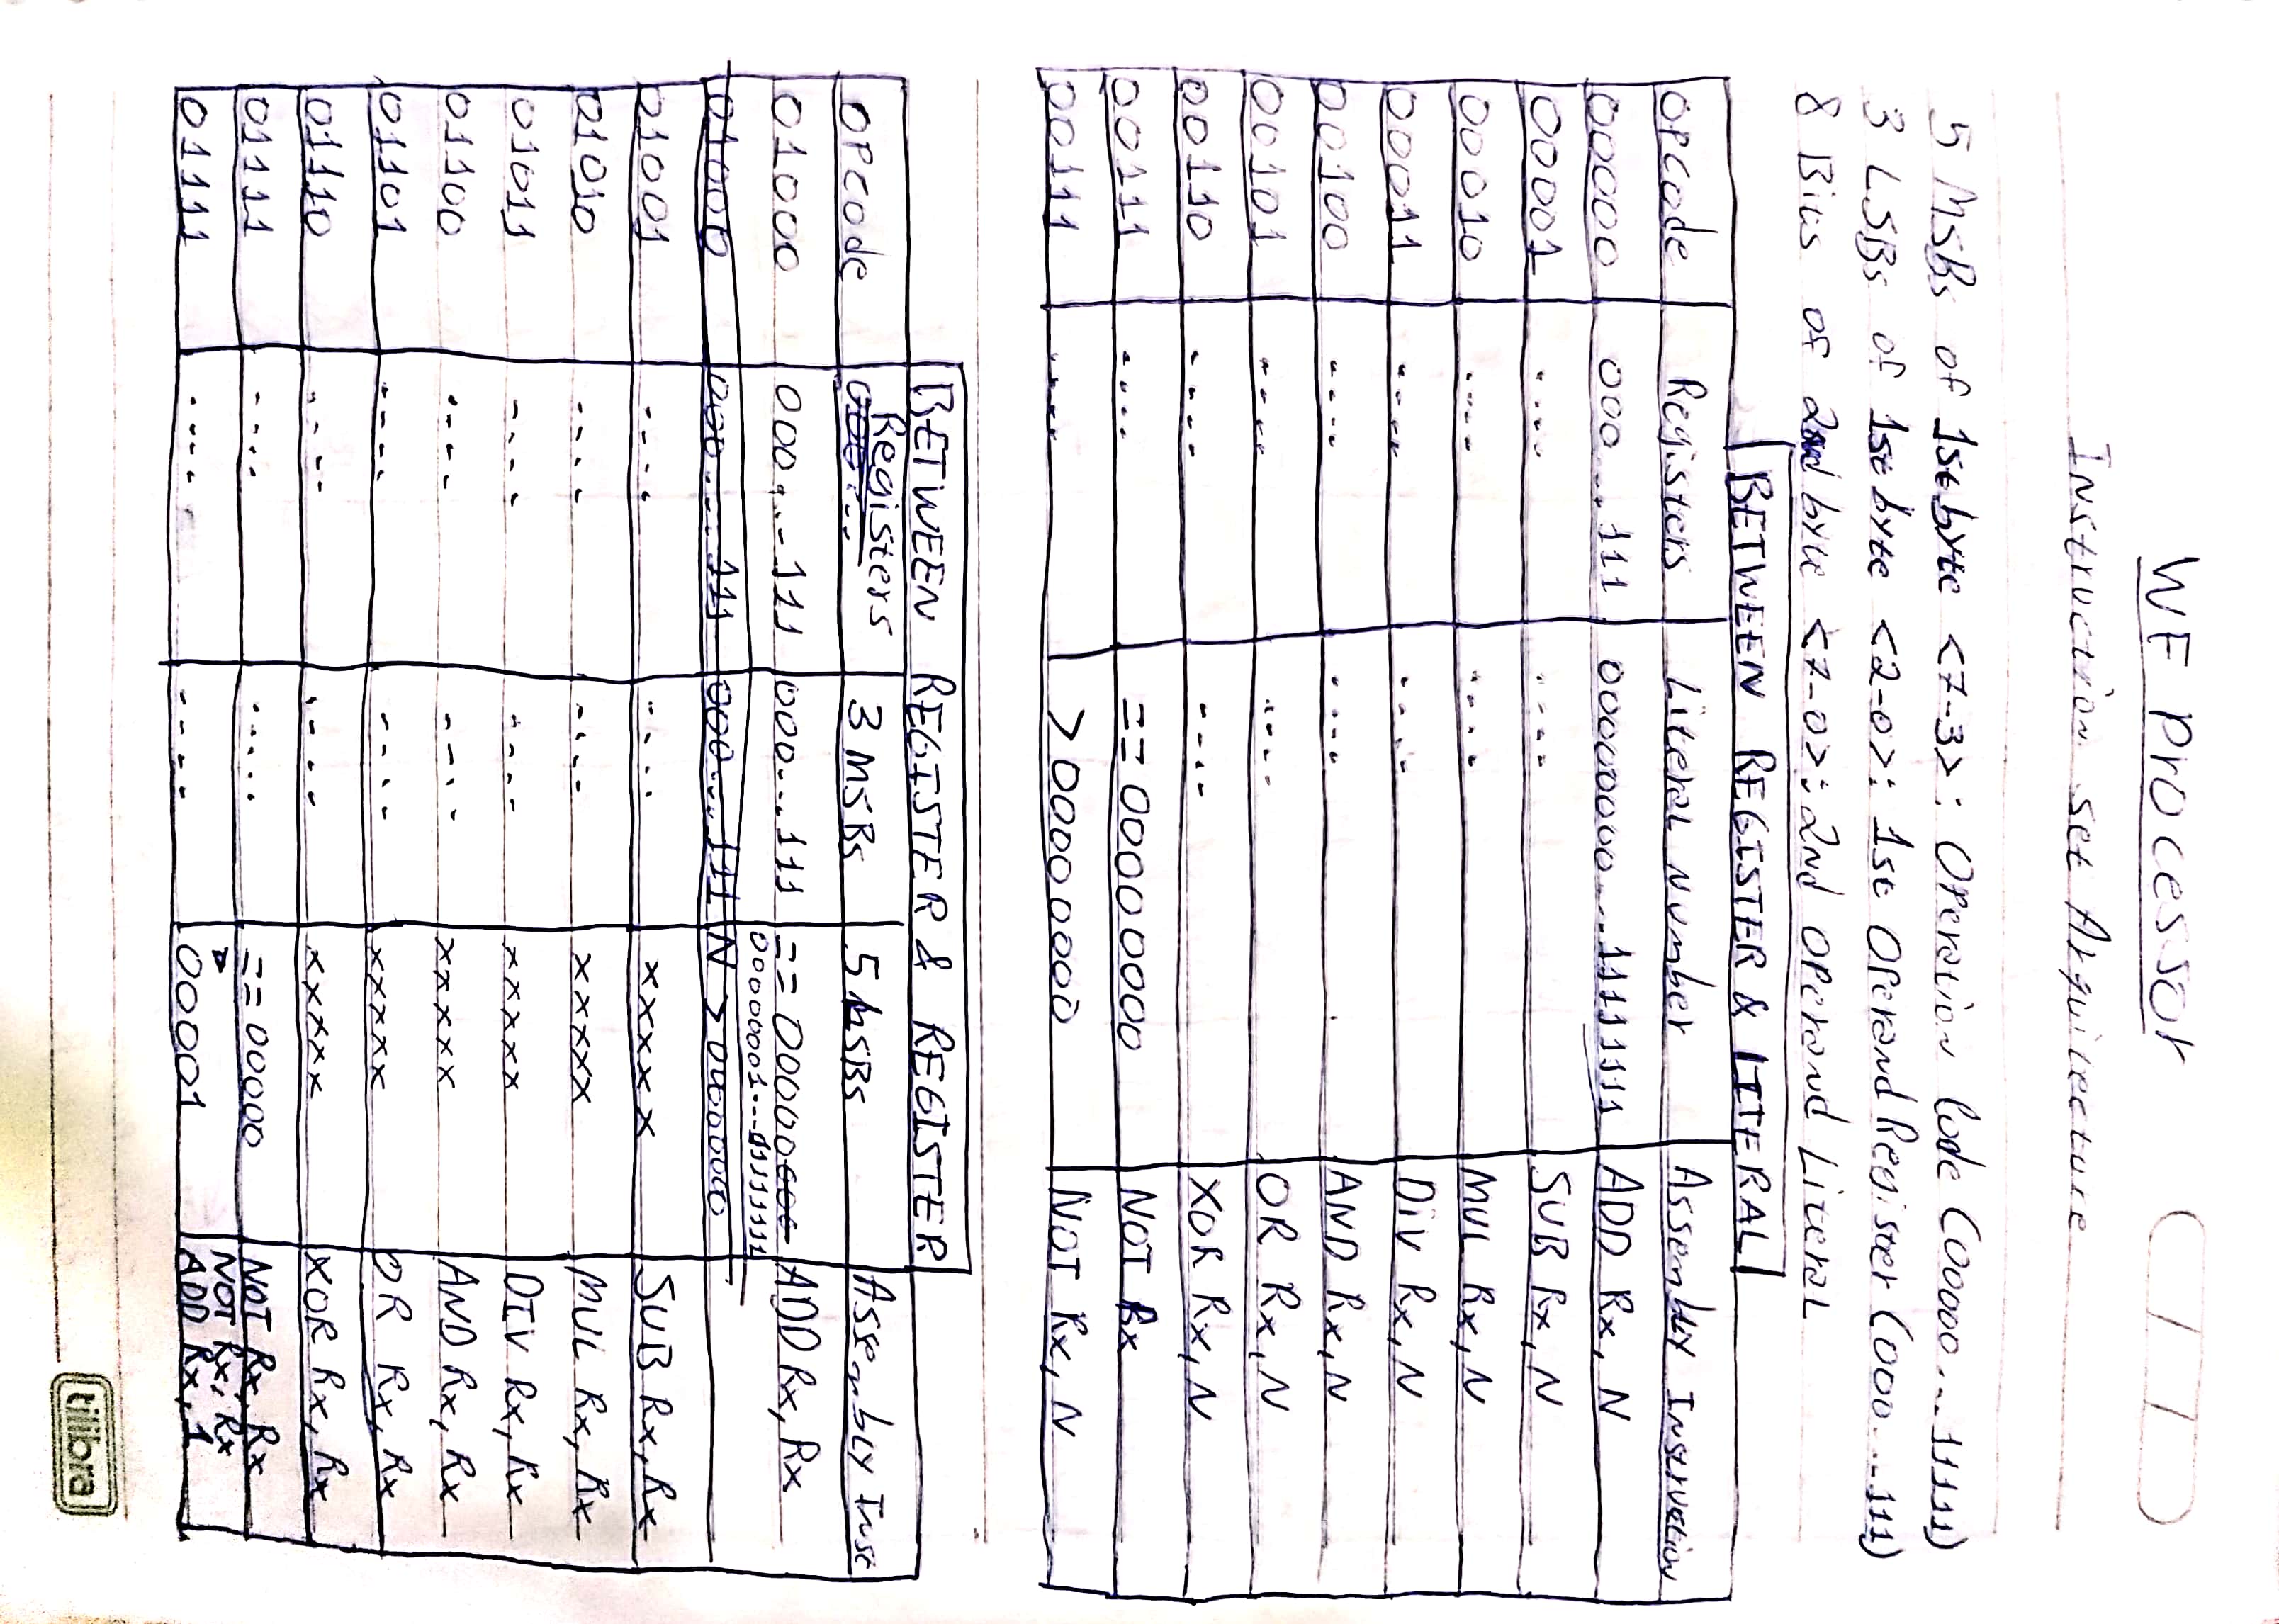 WE Processor
Instruction set Arquitecture
5 MSBs of 1st byte <7-3>: Operation Code (00000...11111)
3 LSBs of 1st byte <2-0>: 1st Operand Register (000...111)
8 Bits of 2nd byte <7-0>: 2nd Operand Literal
BETWEEN REGISTER & LITERAL
OPCode Registers Literal Number Assembly Instruction
00000 000...111 00000000...11111111 ADD Rx, N
00001 .... .... SUB Rx, N
00010 .... .... MUL Rx, N
00011 .... .... Div Rx, N
00100 .... .... AND Rx, N
00101 .... .... OR Rx, N
00110 .... .... XOR Rx, N
00111 .... == 00000000 NOT Rx
00111 .... > 00000000 NOT Rx, N
BETWEEN REGISTER & REGISTER
OPCode Registers 3 MSBs 5 LSBs Assembly Inst
01000 000...111 000...111 == 00000000 ADD Rx, Rx
00000001...11111111
01000 000...111 000...111 N > 00000000
01001 .... .... xxxxx SUB Rx, Rx
01010 .... .... xxxxx MUL Rx, Rx
01011 .... .... xxxxx DIV Rx, Rx
01100 .... .... xxxxx AND Rx, Rx
01101 .... .... xxxxx OR Rx, Rx
01110 .... .... xxxxx XOR Rx, Rx
01111 .... ..... == 00000 NOT Rx, Rx
> NOT Rx, Rx
01111 .... .... 00001 ADD Rx, 1
tilibra